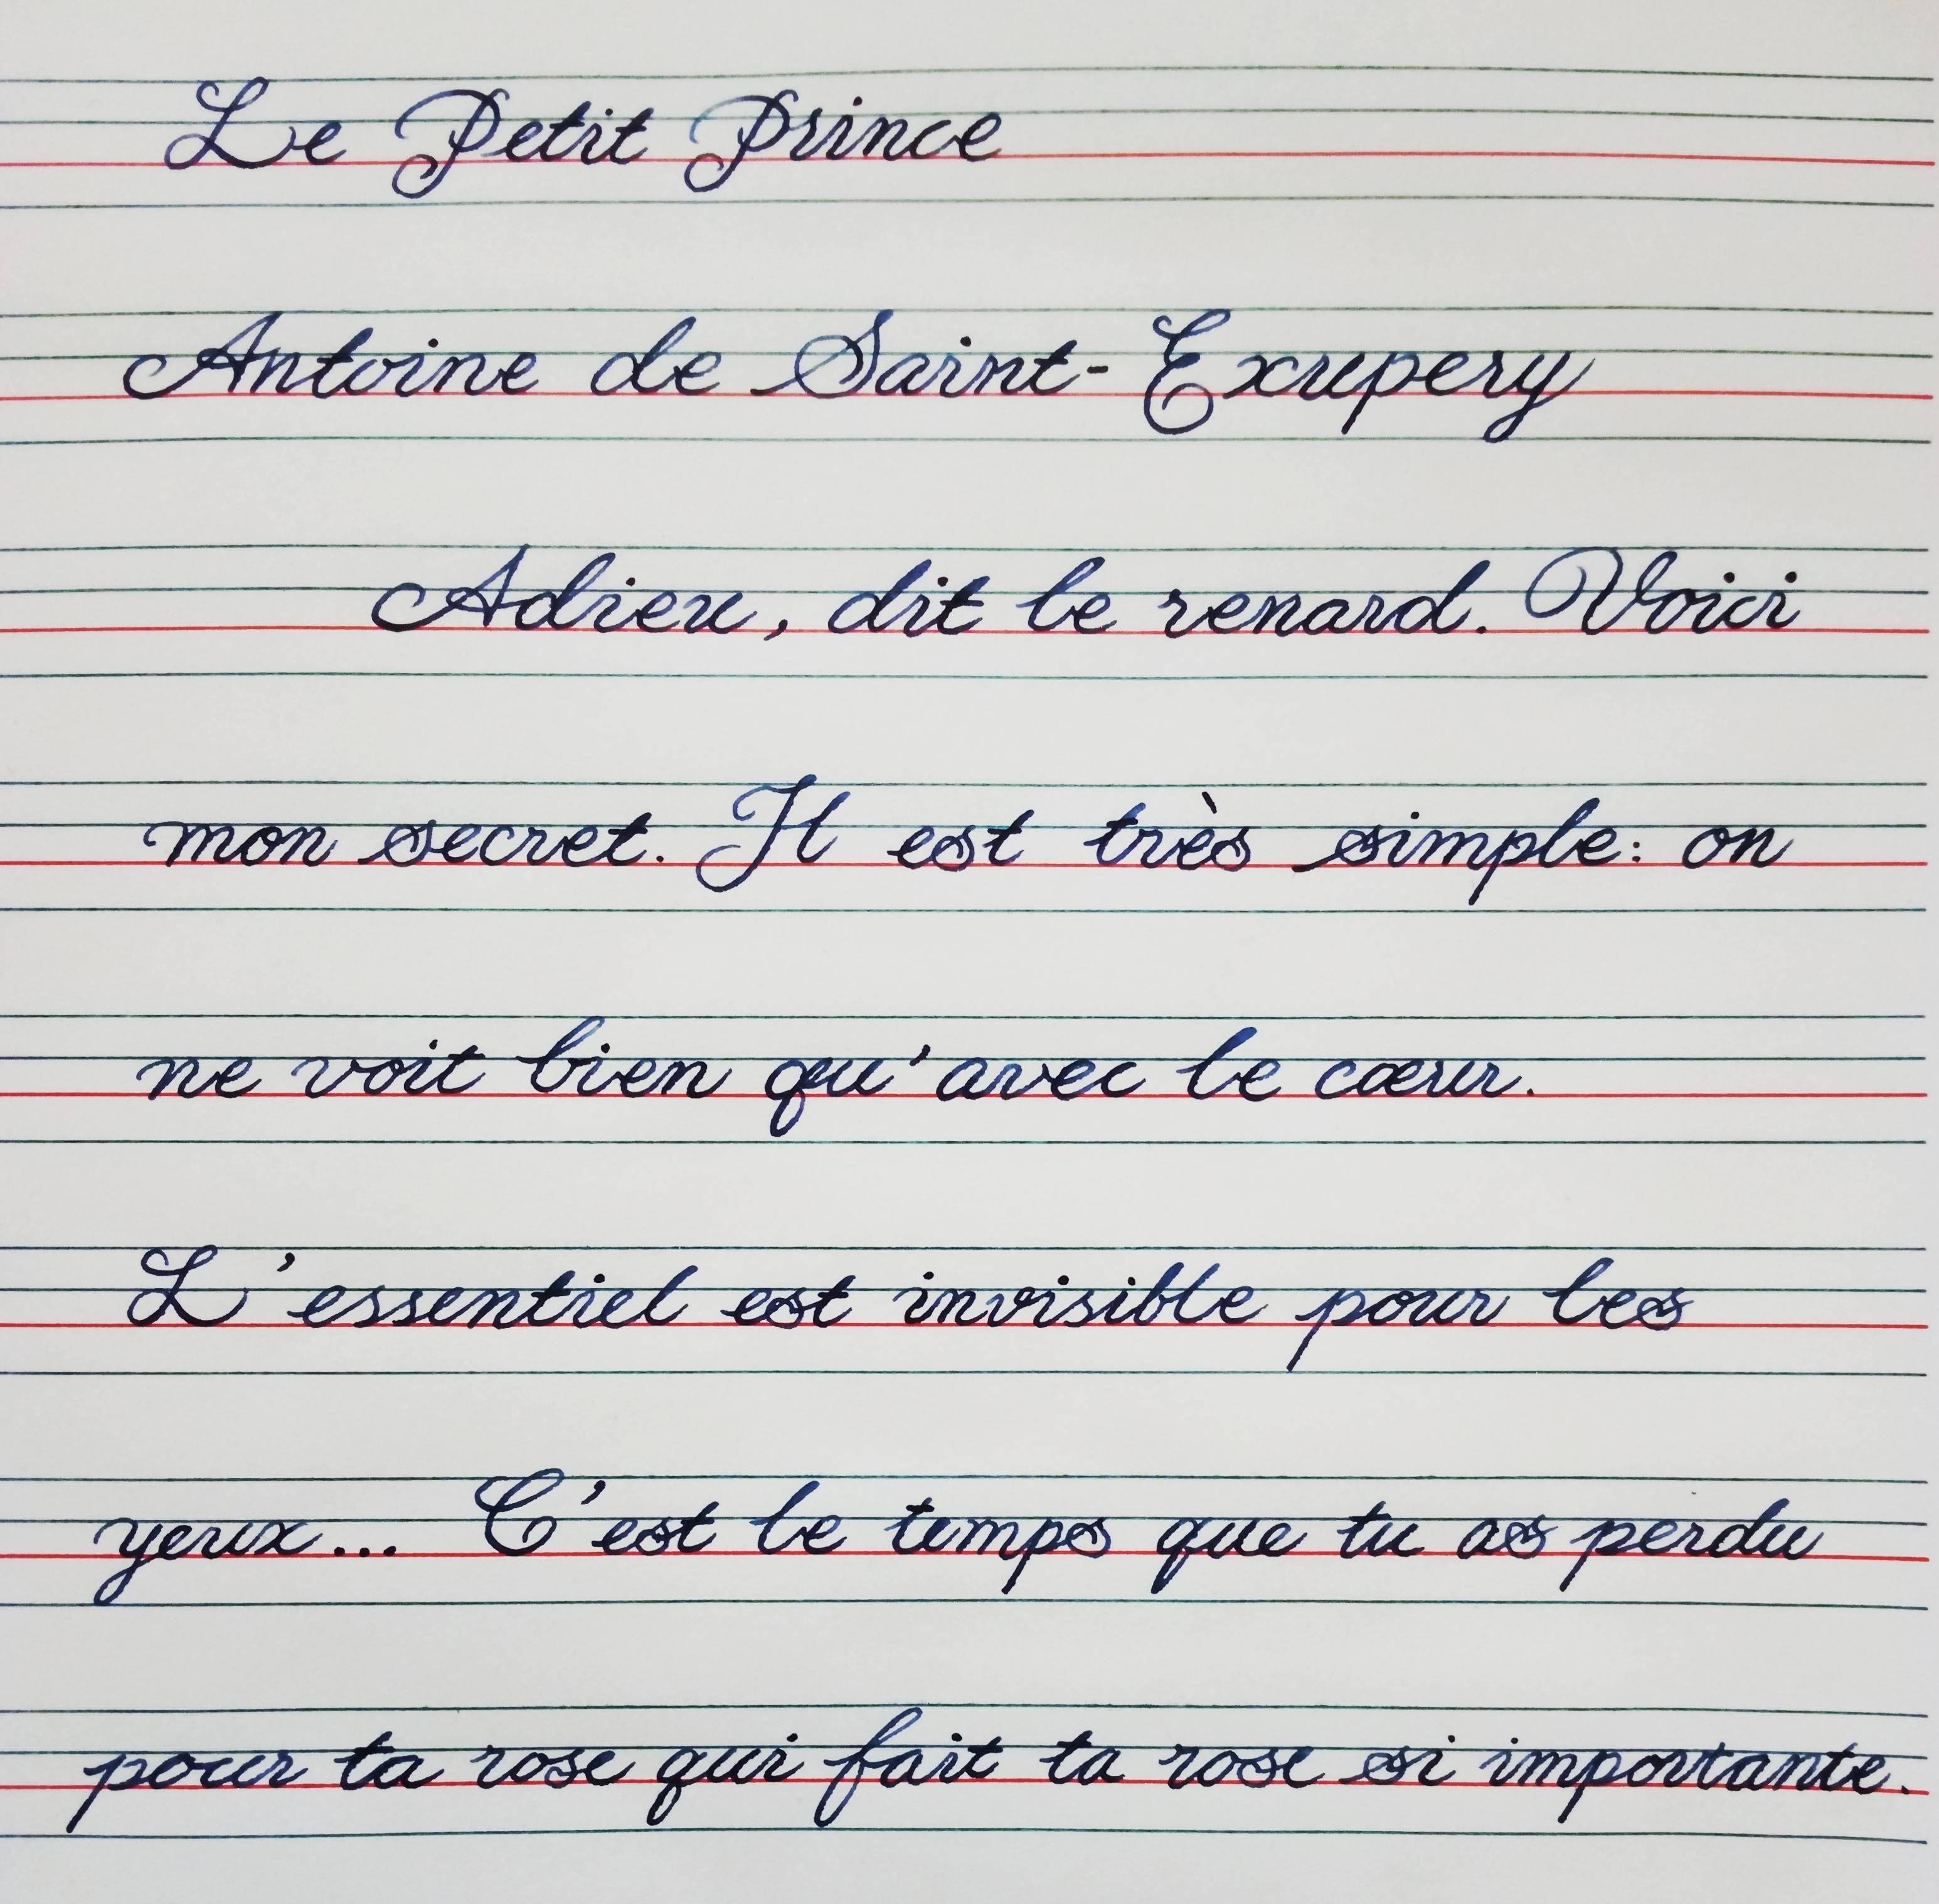 Le Petit Prince
Antoine de Saint-Exupery
Adieu, dit le renard. Voici
mon secret. Il est très simple: on
ne voit bien qu'avec le cœur.
L'essentiel est invisible pour les
yeux... C'est le temps que tu as perdu
pour ta rose qui fait ta rose si importante.